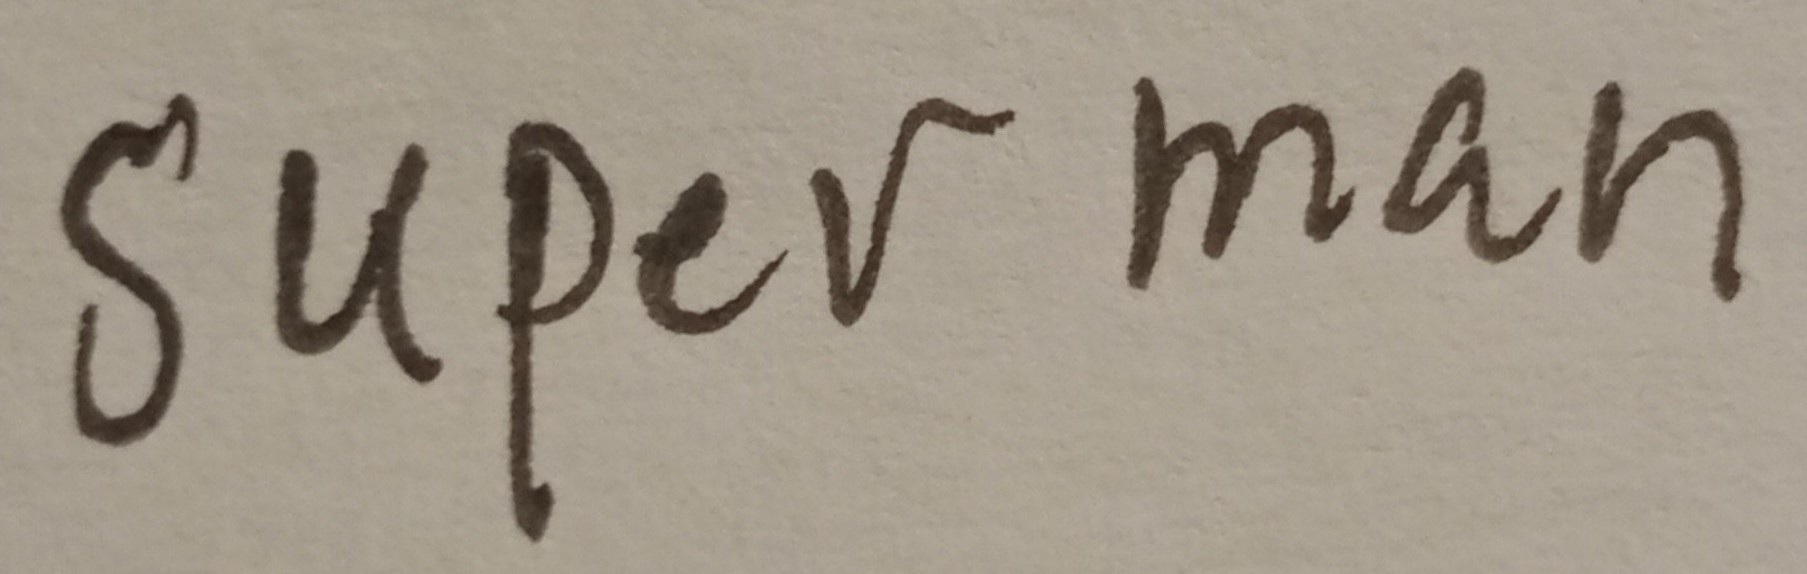 super man